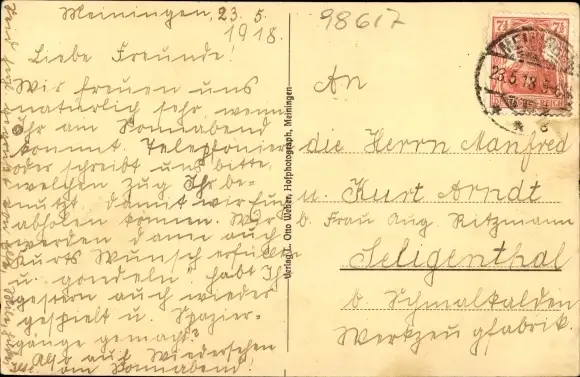 Meiningen, 23.5.
1918.
Liebe Freunde!
Wir freuen uns
natürlich sehr, wenn
Ihr am Sonnabend
kommt. Telephoniert
oder schreibt uns bitte,
welchen Zug Ihr be-
nutzt, damit wir Euch
abholen können. Wir
werden dann auch
Kurts Wunsch erfüllen
u. gondeln. Habt Ihr
gestern auch wieder
gespielt u. Spazier-
gänge gemacht?
Also auf Wiedersehen
am Sonnabend!
98617
An
die Herrn Manfred
u. Kurt Arndt
b. Frau Aug. Ritzmann
Seligenthal
b. Schmalkalden
Werkzeugfabrik.
Verlag L. Otto Weber, Hofphotograph, Meiningen
7½ 7½
DEUTSCHES REICH
MEININGEN
23.5.18.